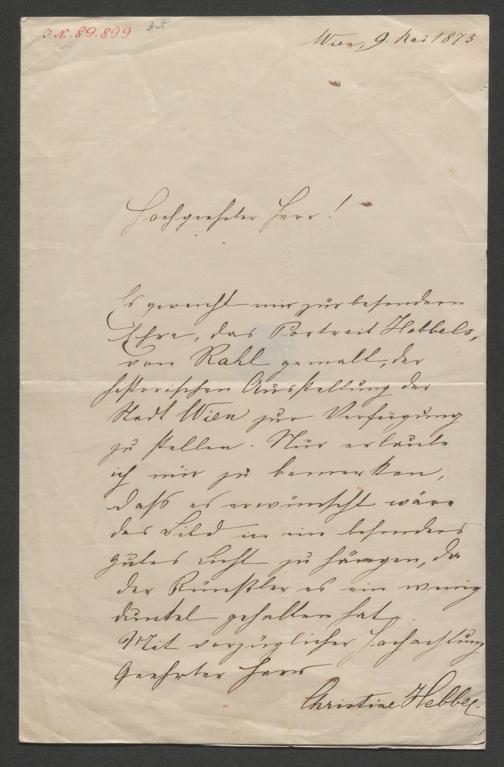 J.N. 89.899
Wien, 9. Mai 1873
Hochgeehrter Herr!
Es gereicht mir zur besondern
Ehre, das Portrait Hebbels,
von Rahl gemalt, der
historischen Ausstellung der
Stadt Wien zur Verfügung
zu stellen. Nur erlaube
ich mir zu bemerken,
daß es erwünscht wäre
das Bild in ein besonders
gutes Licht zu hängen, da
der Künstler es ein wenig
dunkel gehalten hat.
Mit vorzüglicher Hochachtung
Geehrter Herr
Christine Hebbel